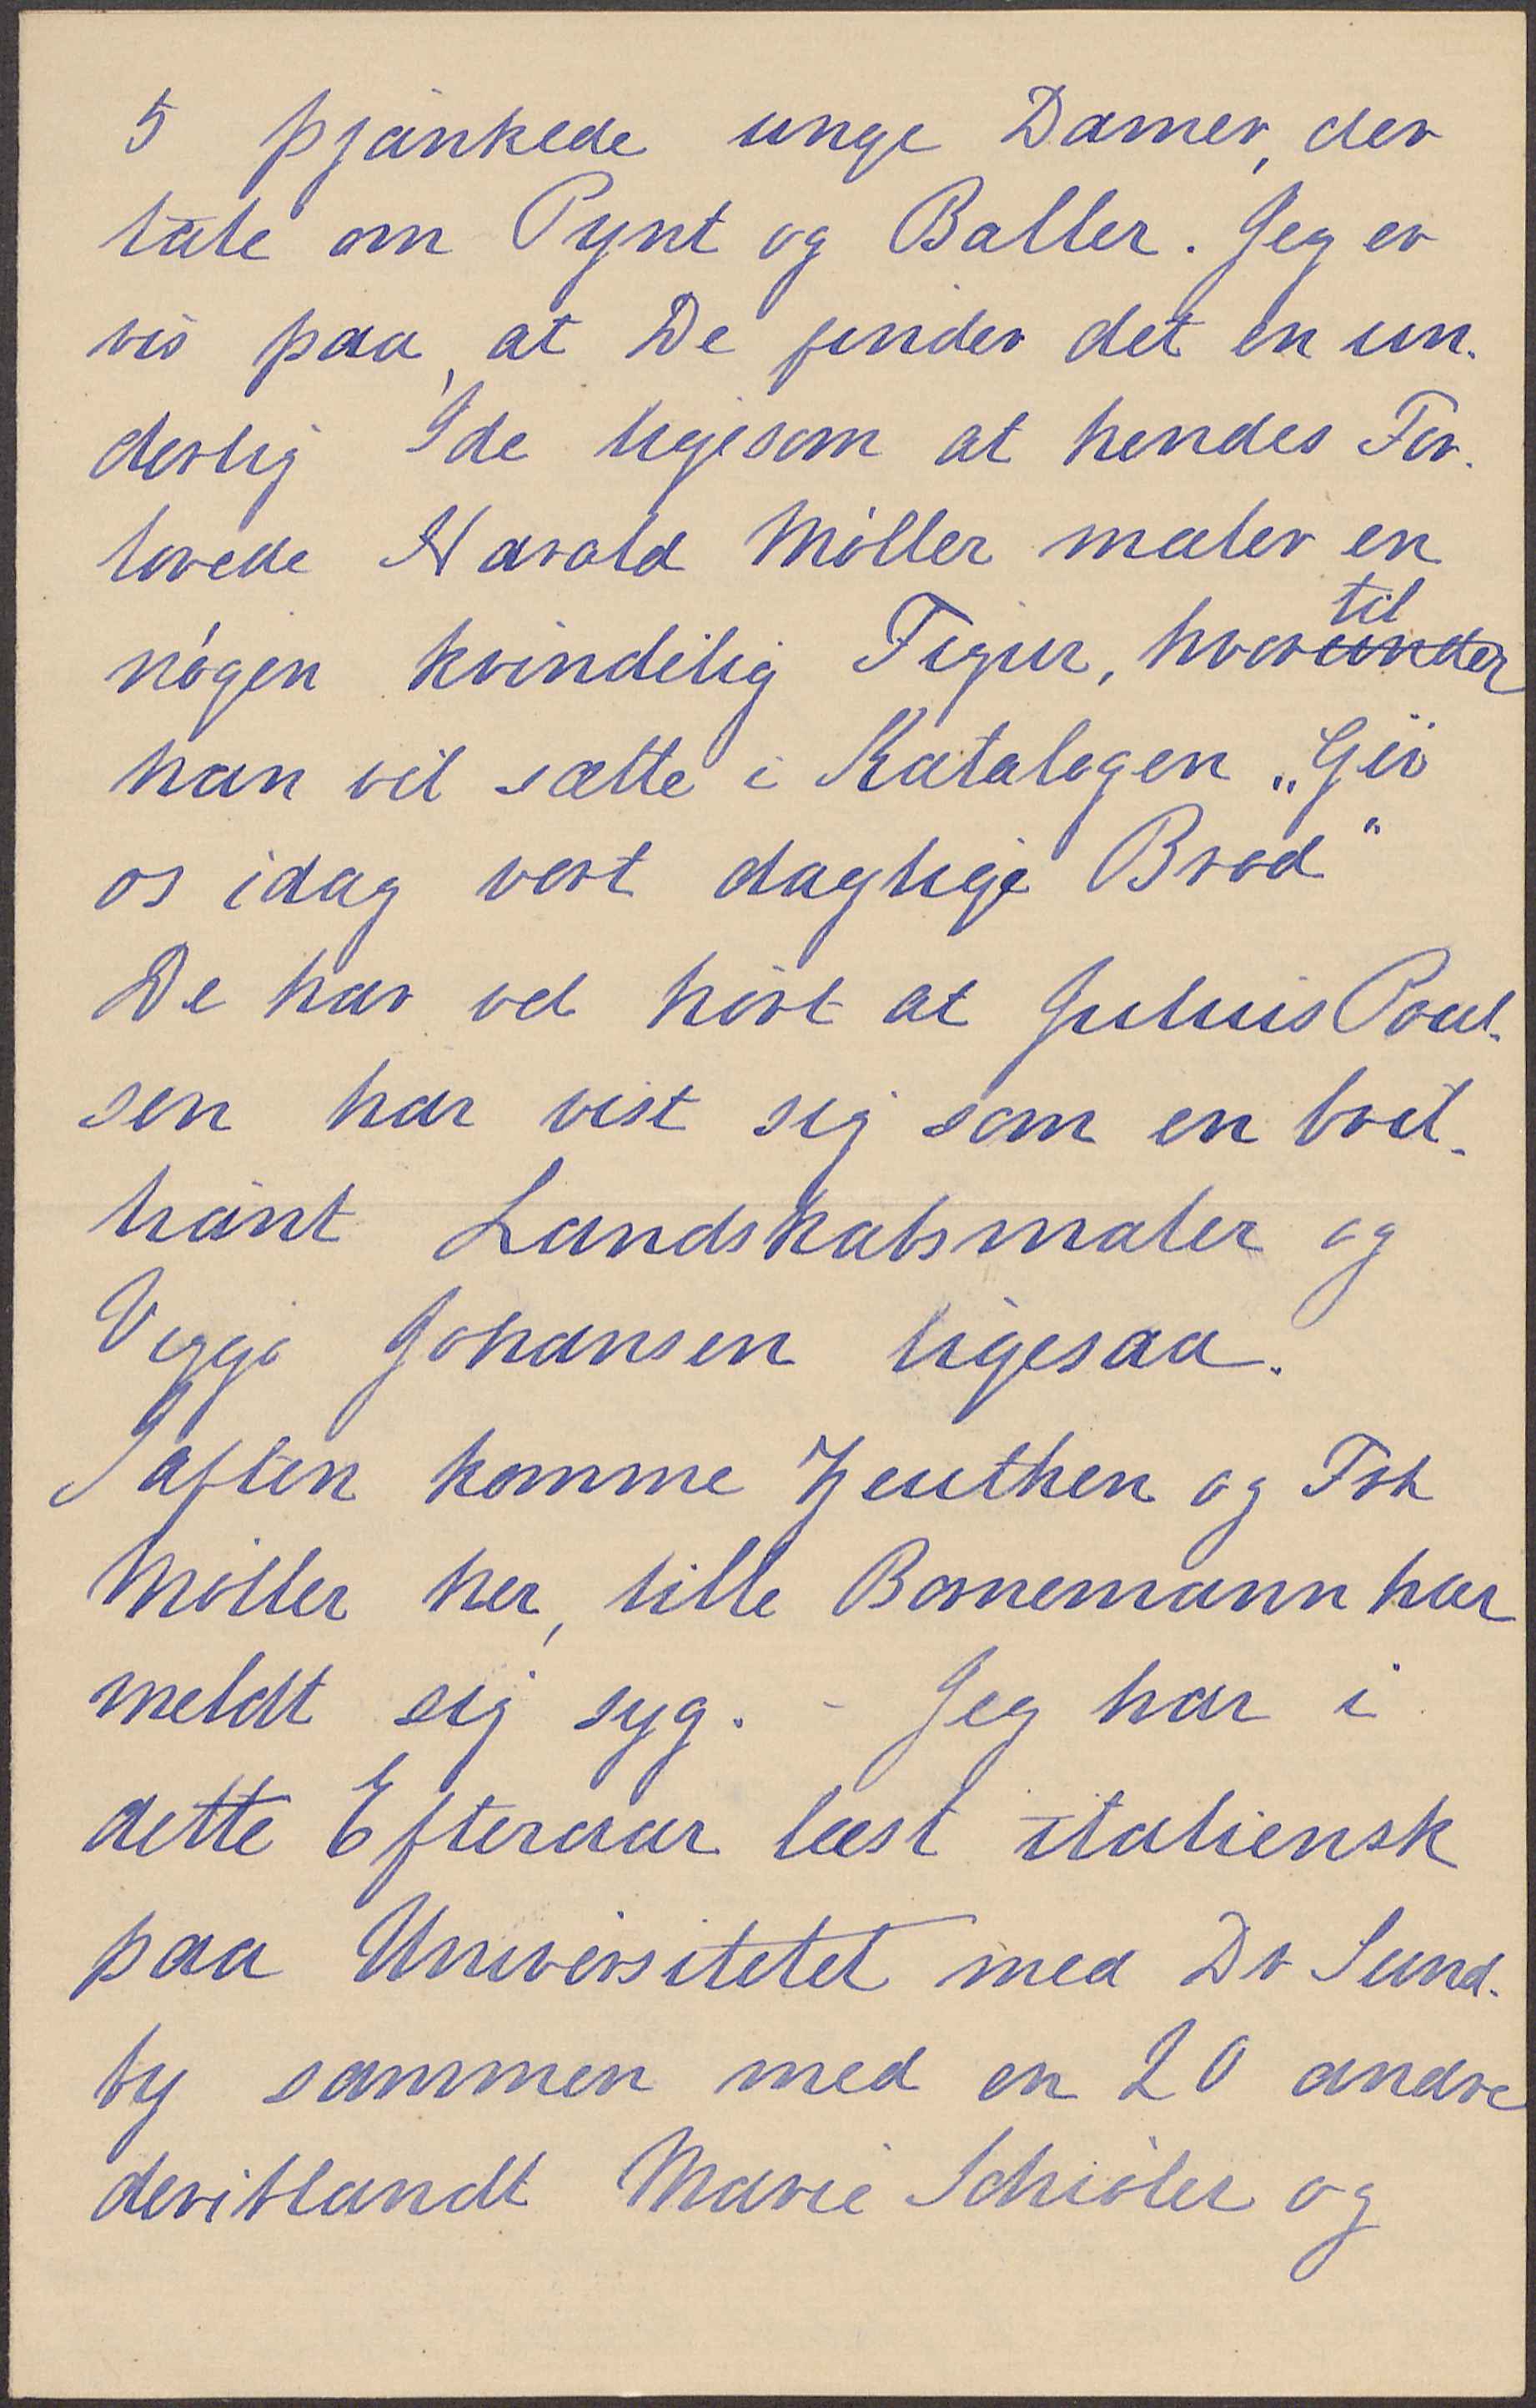 5 pjankede unge Damer, der
tale om Pynt og Baller. Jeg er
vis paa, at De finder det en un-
derlig Ide ligesom at hendes For-
lovede Harald Møller maler en
nøgen kvindelig Figur, hvortil ~~under~~
han vil sætte i Katalogen „Giv
os idag vort daglige Brød"
De har vel hørt at Julius Poul-
sen har vist sig som en bril-
liant Landskabsmaler og
Viggo Johansen ligesaa.
Iaften komme Zeuthen og Frk
Møller her, lille Bornemann har
meldt sig syg. - Jeg har i
dette Efteraar læst italiensk
paa Universitetet med Dr Sund-
by sammen med en 20 andre
deriblandt Marie Schiøler og